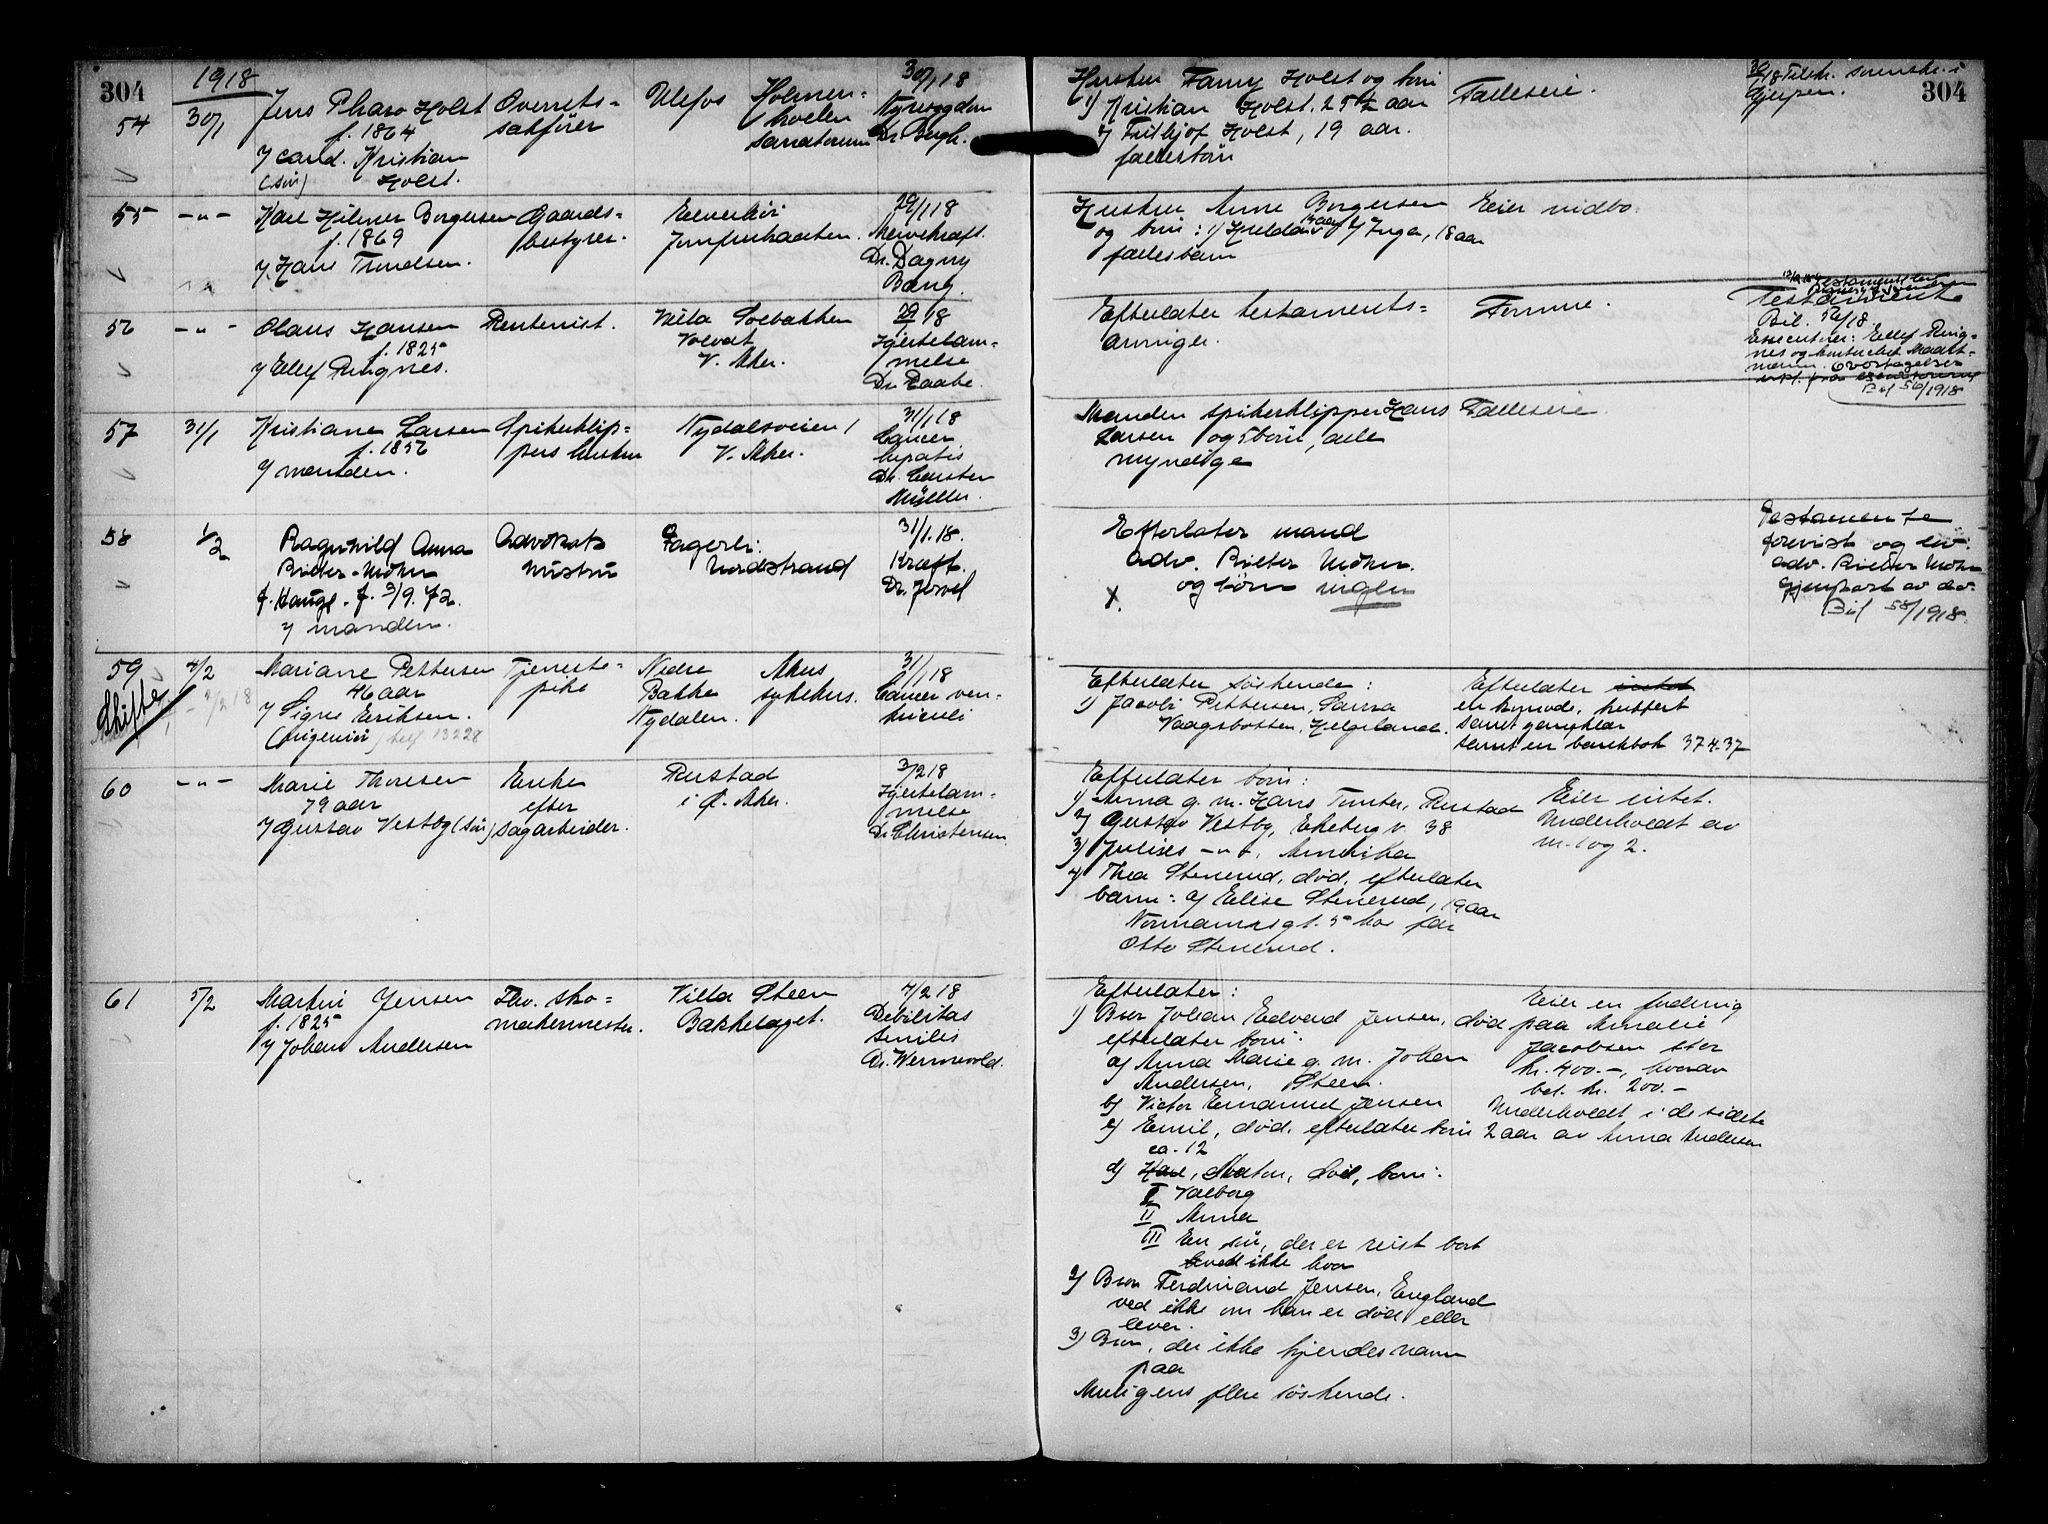 304
1918
54
30/1
Jens Pharo Holst
f. 1864
v/ cand. Kristian
(søn) Holst.
Overrets-
sakfører
Ulefos
Holmen-
kollen
sanatorium
30/1 18
Nyresygdom
Dr. Bugh.
Hustru Fanny Holst og børn
1) Kristian Holst. 25 1/2 aar
2/ Fritjof Holst, 19 aar.
fællesbørn
Fælleseie.
30/1 18 Telefr. sorenskr. i
Gjerpen.
304
55
-"-
Karl Hilmer Borgersen
f. 1869
v/ Hans Trondsen.
Gaards-
bestyrer.
Elverhøi
Jomfrubraaten.
29/1 18
Mavekræft.
Dr. Dagny
Bang.
Hustru Anne Borgersen
og børn: 1/ Hulda 2/ Inga, 18 aar
fællesbarn
Eier uidbo.
56
-"-
Olaus Hansen
f. 1825
v/ Ellef Ringnes.
Rentenist.
Villa Solbakken
Volvat
V. Aker.
29/1 18
Hjertelam-
melse
Dr. Raabe.
Efterlater testaments-
arvinger.
Formue.
Testamente
Bil. 56/18.
Executorer: Ellef Ring-
nes og
Bil 56/1918
57
31/1
Kristiane Larsen
f. 1856
v/ manden.
Spikerklip-
pers hustru
Nydalsveien 1
V. Aker.
31/1 18
Cancer
hepatis
Dr. Carsten
Müller.
Manden spikerklipper Hans
Larsen og 5 børn, alle
myndige
Fælleseie
58
1/2
Ragnhild Anna
Rieber-Mohn
f. Hauge. f. 3/9. 72.
v/ manden.
Advokats
hustru
Fagerli.
Nordstrand
31/1. 18.
Kræft.
Dr. Jervel
Efterlater mand
adv. Rieber Mohn.
og børn ingen
X.
Testamente
forevist og lev.
adv. Rieber Mohn
gjenpart av do.
Bil 58/1918.
59
Skifte
4/2
Mariane Pettersen
46 aar
v/ Signe Eriksen.
telf 13228
Tjeneste-
pike
Nedre
Bakke
Nydalen.
Akers
sykehus.
31/1 18
Cancer ven-
triculi
Efterlater søskende:
1) Jacob Pettersen, Sanna
Vaagsbotten, Helgeland.
Efterlater intet
en komode, kuffert
samt gangklær
samt en bankbok 374.37
60
-"-
Marie Thoresen
79 aar
v/ Gustav Vestby (søn)
Enke
efter
sagarbeider.
Rustad
i Ø. Aker.
3/2 18
Hjertelam-
melse
Dr. Christensen
Efterlater børn:
1) Anna g. m. Hans Tunter, Rustad
2) Gustav Vestby, Ekeberg v. 38
3) Julius -"-, Amerika
4) Thea Stenerud, død, efterlater
barn: a/ Elise Stenerud, 19 aar
Normannsgt. 5 hos far
Otto Stenerud.
Eier intet.
Underholdt av
nr. 1 og 2.
61
5/2
Martin Jensen
f. 1825
v/ Johan Andersen
Fhv. sko-
makermester.
Villa Steen
Bækkelaget.
4/2 18
Debilitas
senilis
Dr. Wermevold.
Efterlater:
1) Bror Johan Edvard Jensen, død
efterlater børn:
a/ Anna Marie g. m. Johan
Andersen, Steen.
b/ Victor Emanuel Jensen
c/ Emil, død, efterlater børn
ca. 12
d) Karl, Maton, død, børn:
I Valborg
II Anna
III En søn, der er reist bort
ved ikke hvor
2/ Bror Ferdinand Jensen, England
ved ikke om han er død eller
lever.
3) Bror, der ikke kjendes navn
paa
Muligens flere søskende.
Eier en fordring
paa Amalie
Jacobsen stor
kr. 400.-, hvorav
bet. kr. 200.-
Underholdt i de sidste
2 aar av Anna Andersen